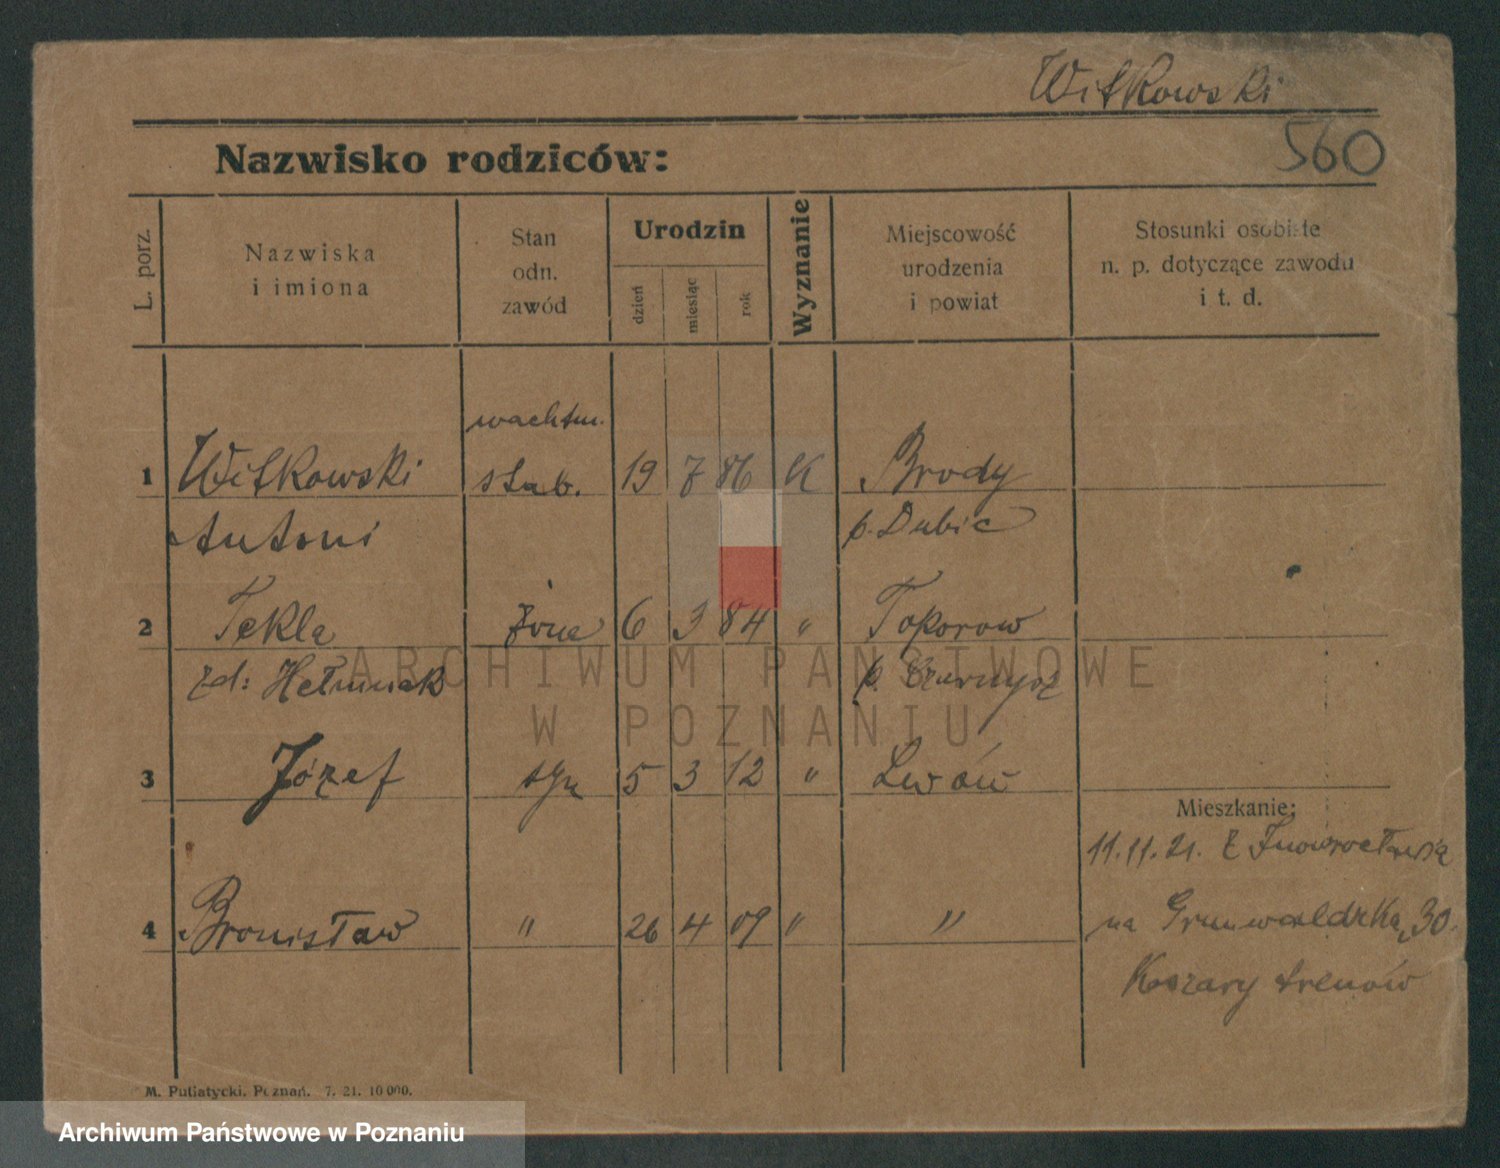 Witkowski
560
Nazwisko rodziców:
L. porz.
Nazwiska
i imiona
Stan
odn.
zawód
Urodzin
dzień
miesiąc
rok
Wyznanie
Miejscowość
urodzenia
i powiat
Stosunki osobiste
n. p. dotyczące zawodu
i t. d.
wachtm.
1 Witkowski stab. 19 7 86 K Brody
Antoni p. Dubic
2 Tekla żona 6 3 84 " Toporow
zd: Hetmnek p.
3 Józef syn 5 3 12 " Lwów
Mieszkanie:
11.11.21. z Inowrocławia
4 Bronisław " 26 4 09 " " na Grunwaldzką 30.
Koszary trenów
M. Putiatycki, Poznań. 7. 21. 10 000.
ARCHIWUM PAŃSTWOWE
W POZNANIU
Archiwum Państwowe w Poznaniu